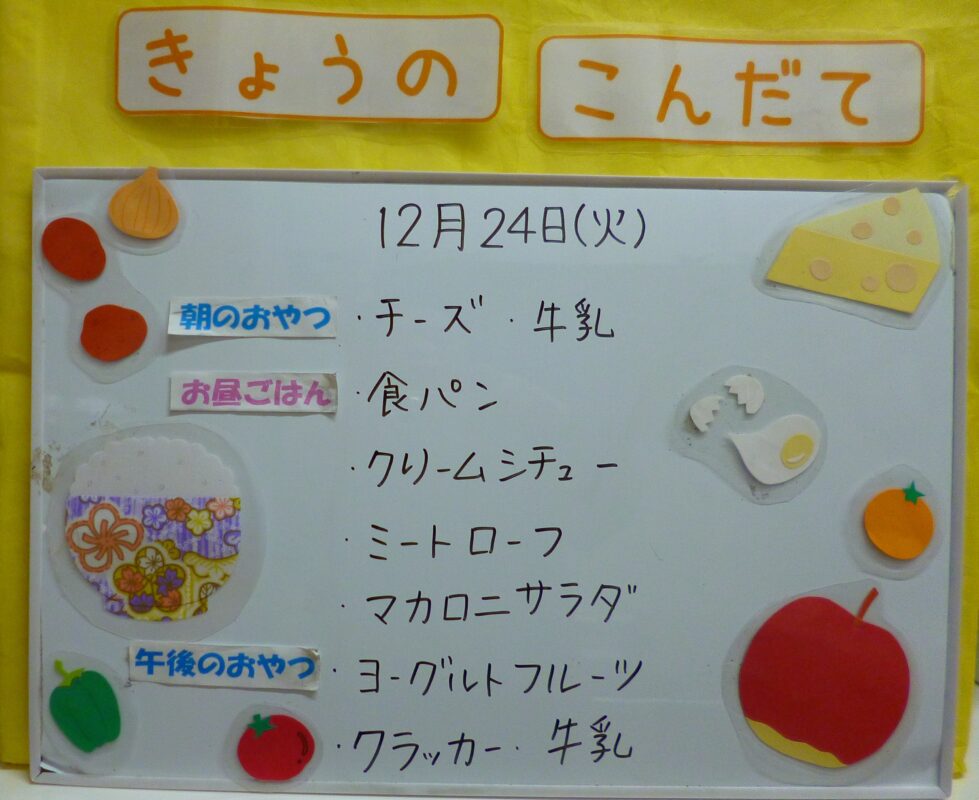 きょうの こんだて
12月24日(火)
朝のおやつ ・チーズ ・牛乳
お昼ごはん ・食パン
・クリームシチュー
・ミートローフ
・マカロニサラダ
午後のおやつ ・ヨーグルトフルーツ
・クラッカー・牛乳